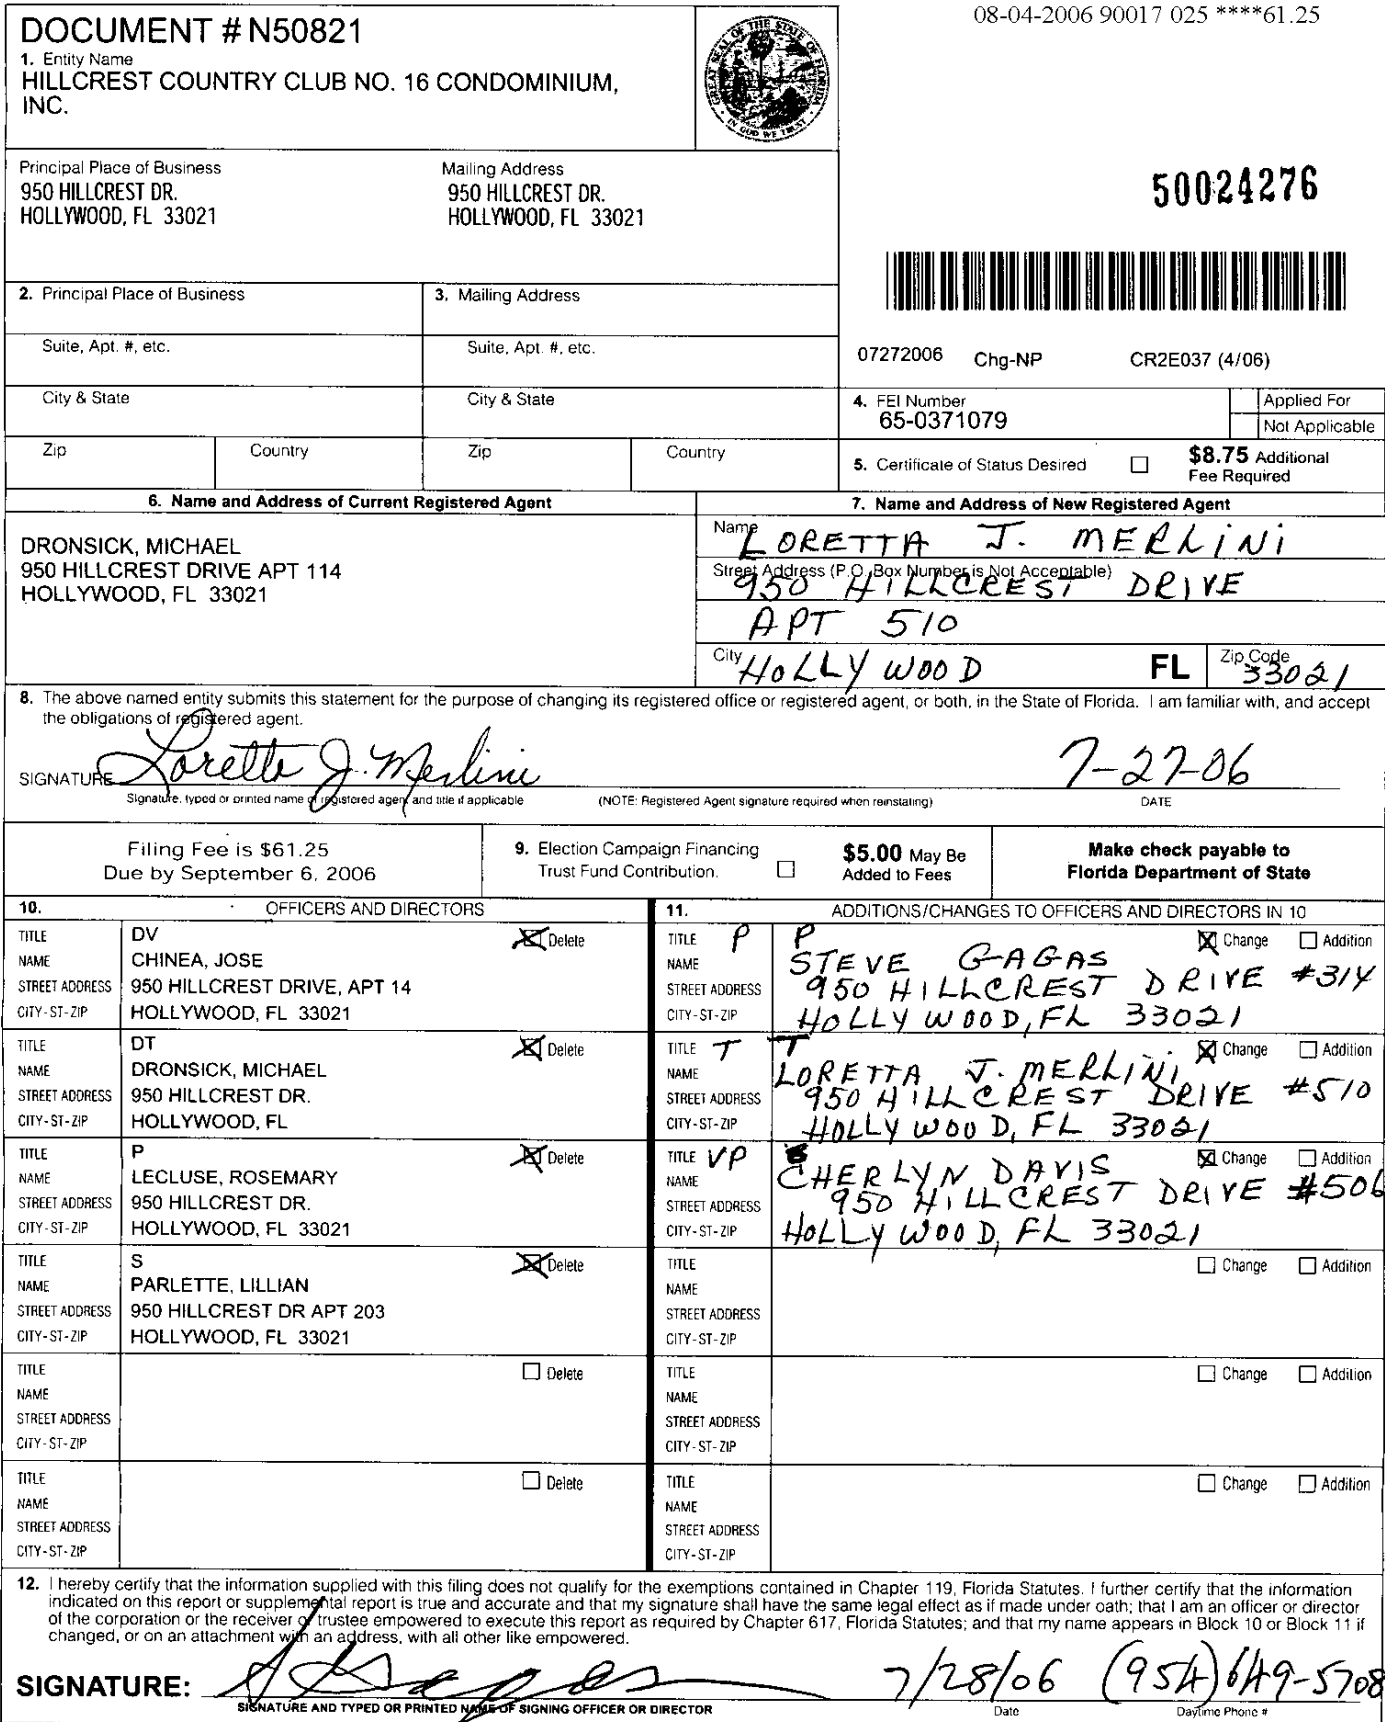 08-04-2006 90017 025 ****61.25
DOCUMENT # N50821
1. Entity Name
HILLCREST COUNTRY CLUB NO. 16 CONDOMINIUM,
INC.
GREAT SEAL OF THE STATE OF FLORIDA
IN GOD WE TRUST
Principal Place of Business
950 HILLCREST DR.
HOLLYWOOD, FL 33021
Mailing Address
950 HILLCREST DR.
HOLLYWOOD, FL 33021
50024276
2. Principal Place of Business
3. Mailing Address
Suite, Apt. #, etc.
Suite, Apt. #, etc.
07272006 Chg-NP CR2E037 (4/06)
City & State
City & State
4. FEI Number
65-0371079
Applied For
Not Applicable
Zip
Country
Zip
Country
5. Certificate of Status Desired
$8.75 Additional
Fee Required
6. Name and Address of Current Registered Agent
7. Name and Address of New Registered Agent
DRONSICK, MICHAEL
950 HILLCREST DRIVE APT 114
HOLLYWOOD, FL 33021
Name LORETTA J. MERLINI
Street Address (P.O. Box Number is Not Acceptable)
950 HILLCREST DRIVE
APT 510
City HOLLYWOOD FL Zip Code 33021
8. The above named entity submits this statement for the purpose of changing its registered office or registered agent, or both, in the State of Florida. I am familiar with, and accept
the obligations of registered agent.
SIGNATURE Loretta J. Merlini 7-27-06
Signature, typed or printed name of registered agent and title if applicable (NOTE: Registered Agent signature required when reinstating) DATE
Filing Fee is $61.25
Due by September 6, 2006
9. Election Campaign Financing
Trust Fund Contribution.
$5.00 May Be
Added to Fees
Make check payable to
Florida Department of State
10. OFFICERS AND DIRECTORS
11. ADDITIONS/CHANGES TO OFFICERS AND DIRECTORS IN 10
TITLE DV Delete
NAME CHINEA, JOSE
STREET ADDRESS 950 HILLCREST DRIVE, APT 14
CITY-ST-ZIP HOLLYWOOD, FL 33021
TITLE P P Change Addition
NAME STEVE GAGAS
STREET ADDRESS 950 HILLCREST DRIVE #314
CITY-ST-ZIP HOLLYWOOD, FL 33021
TITLE DT Delete
NAME DRONSICK, MICHAEL
STREET ADDRESS 950 HILLCREST DR.
CITY-ST-ZIP HOLLYWOOD, FL
TITLE T T Change Addition
NAME LORETTA J. MERLINI
STREET ADDRESS 950 HILLCREST DRIVE #510
CITY-ST-ZIP HOLLYWOOD, FL 33021
TITLE P Delete
NAME LECLUSE, ROSEMARY
STREET ADDRESS 950 HILLCREST DR.
CITY-ST-ZIP HOLLYWOOD, FL 33021
TITLE VP Change Addition
NAME CHERLYN DAVIS
STREET ADDRESS 950 HILLCREST DRIVE #506
CITY-ST-ZIP HOLLYWOOD, FL 33021
TITLE S Delete
NAME PARLETTE, LILLIAN
STREET ADDRESS 950 HILLCREST DR APT 203
CITY-ST-ZIP HOLLYWOOD, FL 33021
TITLE Change Addition
NAME
STREET ADDRESS
CITY-ST-ZIP
TITLE Delete
NAME
STREET ADDRESS
CITY-ST-ZIP
TITLE Change Addition
NAME
STREET ADDRESS
CITY-ST-ZIP
TITLE Delete
NAME
STREET ADDRESS
CITY-ST-ZIP
TITLE Change Addition
NAME
STREET ADDRESS
CITY-ST-ZIP
12. I hereby certify that the information supplied with this filing does not qualify for the exemptions contained in Chapter 119, Florida Statutes. I further certify that the information
indicated on this report or supplemental report is true and accurate and that my signature shall have the same legal effect as if made under oath; that I am an officer or director
of the corporation or the receiver or trustee empowered to execute this report as required by Chapter 617, Florida Statutes; and that my name appears in Block 10 or Block 11 if
changed, or on an attachment with an address, with all other like empowered.
SIGNATURE: 7/28/06 (954)649-5708
SIGNATURE AND TYPED OR PRINTED NAME OF SIGNING OFFICER OR DIRECTOR Date Daytime Phone #